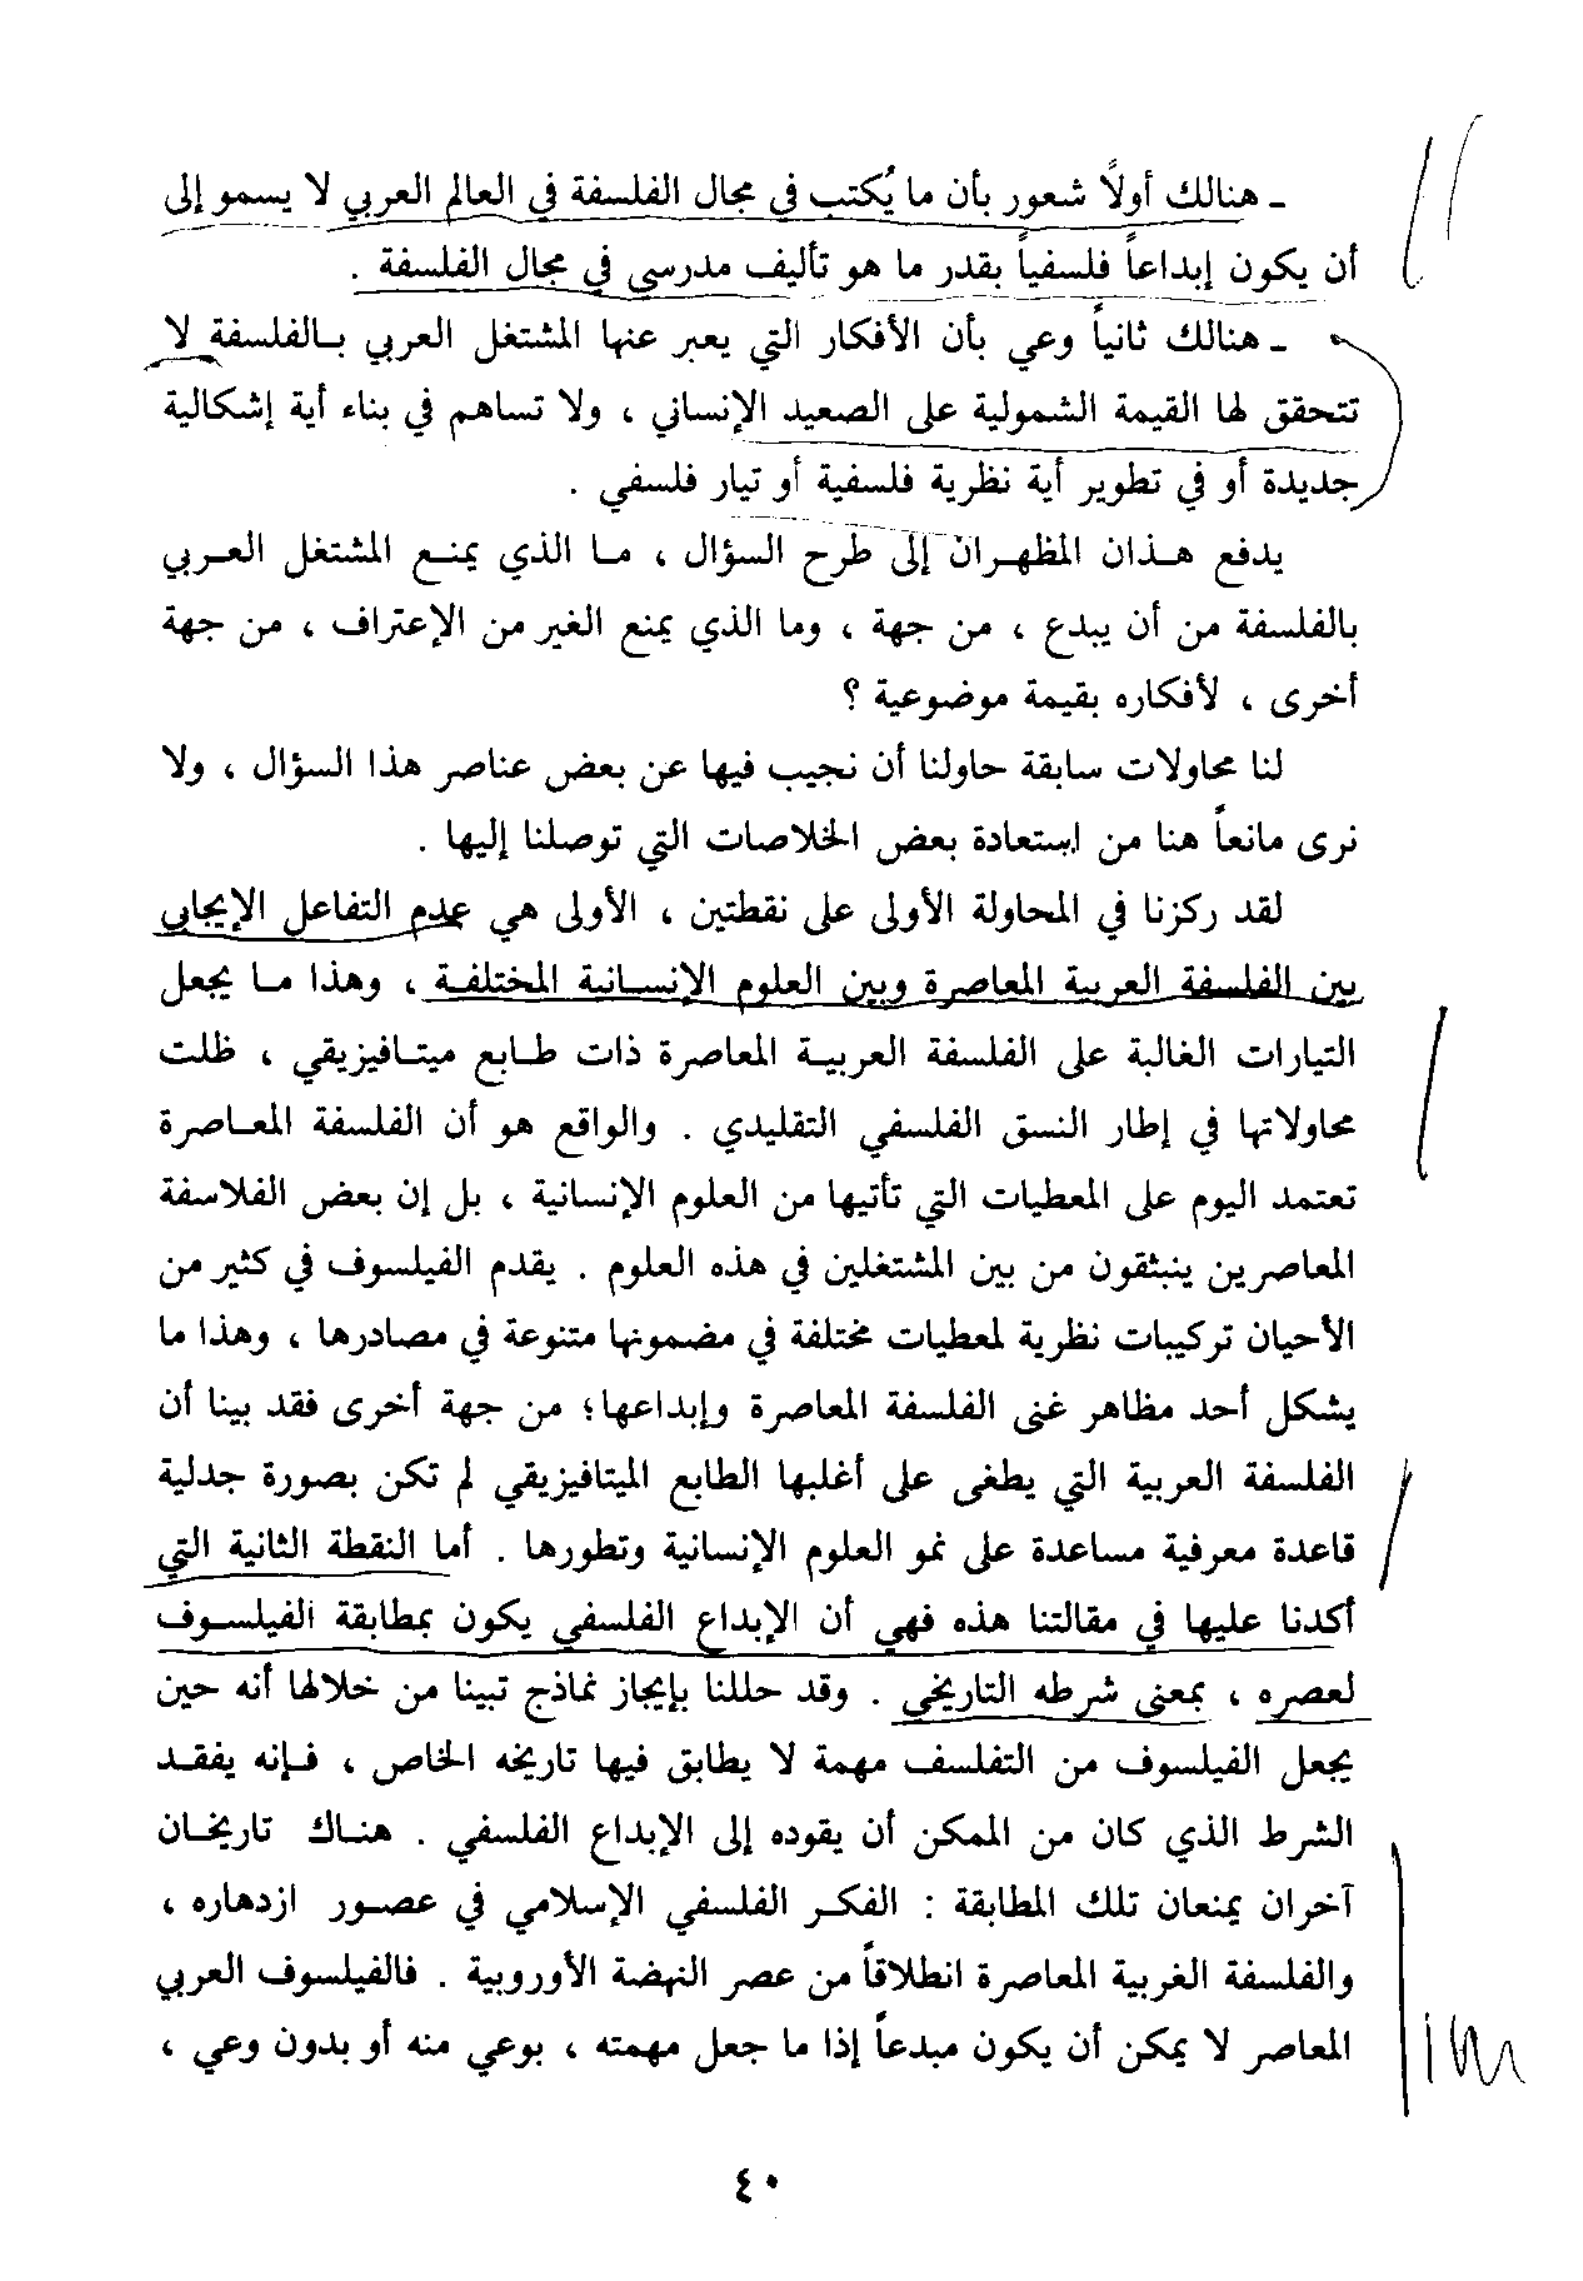 ـ هنالك أولاً شعور بأن ما يُكتب في مجال الفلسفة في العالم العربي لا يسمو إلى
أن يكون إبداعاً فلسفياً بقدر ما هو تأليف مدرسي في مجال الفلسفة .
ـ هنالك ثانياً وعي بأن الأفكار التي يعبر عنها المشتغل العربي بـالفلسفة لا
تتحقق لها القيمة الشمولية على الصعيد الإنساني ، ولا تساهم في بناء أية إشكالية
جديدة أو في تطوير أية نظرية فلسفية أو تيار فلسفي .
يدفع هـذان المظهـران إلى طرح السؤال ، مـا الذي يمنـع المشتغل العـربي
بالفلسفة من أن يبدع ، من جهة ، وما الذي يمنع الغير من الإعتراف ، من جهة
أخرى ، لأفكاره بقيمة موضوعية ؟
لنا محاولات سابقة حاولنا أن نجيب فيها عن بعض عناصر هذا السؤال ، ولا
نرى مانعاً هنا من إستعادة بعض الخلاصات التي توصلنا إليها .
لقد ركزنا في المحاولة الأولى على نقطتين ، الأولى هي عدم التفاعل الإيجابي
بين الفلسفة العربية المعاصرة وبين العلوم الإنسـانية المختلفـة ، وهذا مـا يجعل
التيارات الغالبة على الفلسفة العربيـة المعاصرة ذات طـابع ميتـافيزيقي ، ظلت
محاولاتها في إطار النسق الفلسفي التقليدي . والواقع هو أن الفلسفة المعـاصرة
تعتمد اليوم على المعطيات التي تأتيها من العلوم الإنسانية ، بل إن بعض الفلاسفة
المعاصرين ينبثقون من بين المشتغلين في هذه العلوم . يقدم الفيلسوف في كثير من
الأحيان تركيبات نظرية لمعطيات مختلفة في مضمونها متنوعة في مصادرها ، وهذا ما
يشكل أحد مظاهر غنى الفلسفة المعاصرة وإبداعها؛ من جهة أخرى فقد بينا أن
الفلسفة العربية التي يطغى على أغلبها الطابع الميتافيزيقي لم تكن بصورة جدلية
قاعدة معرفية مساعدة على نمو العلوم الإنسانية وتطورها . أما النقطة الثانية التي
أكدنا عليها في مقالتنا هذه فهي أن الإبداع الفلسفي يكون بمطابقة الفيلسـوف
لعصره ، بمعنى شرطه التاريخي . وقد حللنا بإيجاز نماذج تبينا من خلالها أنه حين
يجعل الفيلسوف من التفلسف مهمة لا يطابق فيها تاريخه الخاص ، فـإنه يفقـد
الشرط الذي كان من الممكن أن يقوده إلى الإبداع الفلسفي . هنـاك تاريخـان
آخران يمنعان تلك المطابقة : الفكـر الفلسفي الإسلامي في عصـور ازدهاره ،
والفلسفة الغربية المعاصرة انطلاقاً من عصر النهضة الأوروبية . فالفيلسوف العربي
المعاصر لا يمكن أن يكون مبدعاً إذا ما جعل مهمته ، بوعي منه أو بدون وعي ،
٤٠